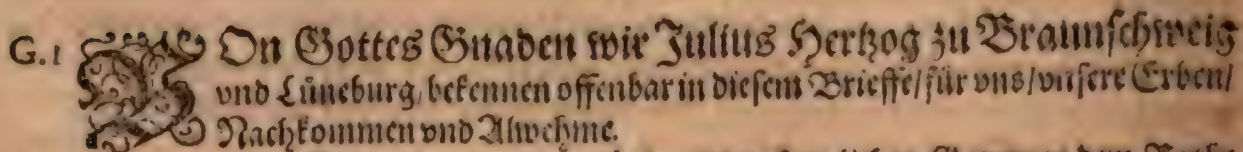 G.1 VOn Gottes Gnaden wir Julius Hertzog zu Braunschweig
vnd Lüneburg, bekennen offenbar in diesem Brieffe/für vns/vnsere Erben/
Nachkommen vnd Alwehme.